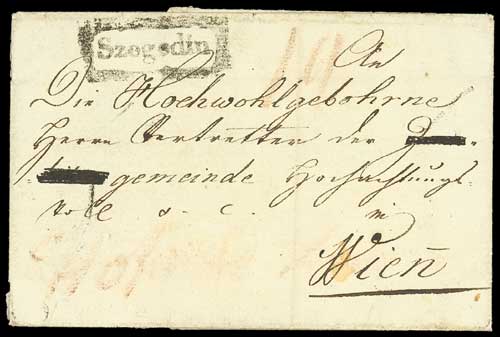 Szegedin
An
Die Hochwohlgebohrne
Herrn Vertretter der
gemeinde Hochachtungs-
voll
in
Wien̄